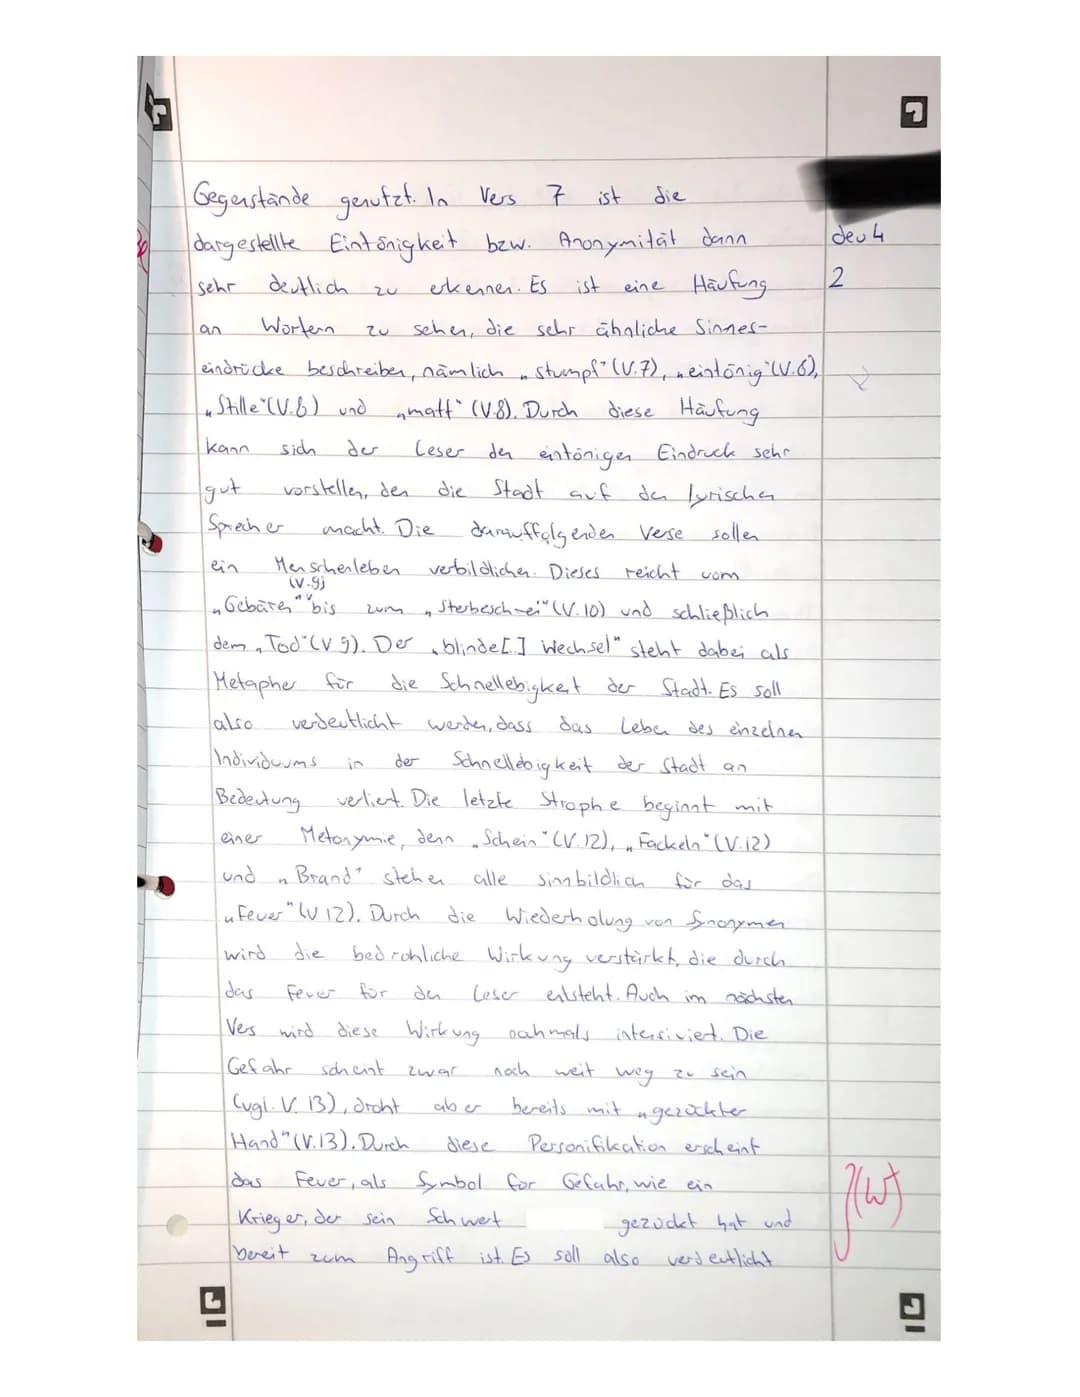 Gegenstände genutzt. In Vers 7 ist die
dargestellte Eintönigkeit bzw. Anonymität dann
deu 4
sehr deutlich zu erkennen. Es ist eine Häufung
2
an Wörtern zu sehen, die sehr ähnliche Sinnes-
eindrücke beschreiben, nämlich „stumpf" (V.7), „eintönig"(V.6),
„Stille"(V.8) und „matt" (V.8). Durch diese Häufung
kann sich der Leser den eintönigen Eindruck sehr
gut vorstellen, den die Stadt auf den lyrischen
Sprecher macht. Die darauffolgenden Verse sollen
ein Menschenleben verbildlichen. Dieses reicht vom
(V.9)
„Gebären" bis zum „Sterbeschrei" (V.10) und schließlich
dem „Tod"(V 9). Der „blinde[.] Wechsel" steht dabei als
Metapher für die Schnellebigkeit der Stadt. Es soll
also verdeutlicht werden, dass das Leben des einzelnen
Individuums in der Schnellebigkeit der Stadt an
Bedeutung verliert. Die letzte Strophe beginnt mit
einer Metonymie, denn „Schein"(V.12), „Fackeln"(V.12)
und „Brand" stehen alle sinnbildlich für das
„Feuer" (V 12). Durch die Wiederholung von Synonymen
wird die bedrohliche Wirkung verstärkt, die durch
das Feuer für den Leser entsteht. Auch im nächsten
Vers wird diese Wirkung nochmals intensiviert. Die
Gefahr scheint zwar noch weit weg zu sein
(vgl. V. 13), droht aber bereits mit „gezückter
Hand"(V.13). Durch diese Personifikation erscheint
das Feuer, als Symbol für Gefahr, wie ein
Krieger, der sein Schwert gezückt hat und
(W)
bereit zum Angriff ist. Es soll also verdeutlicht